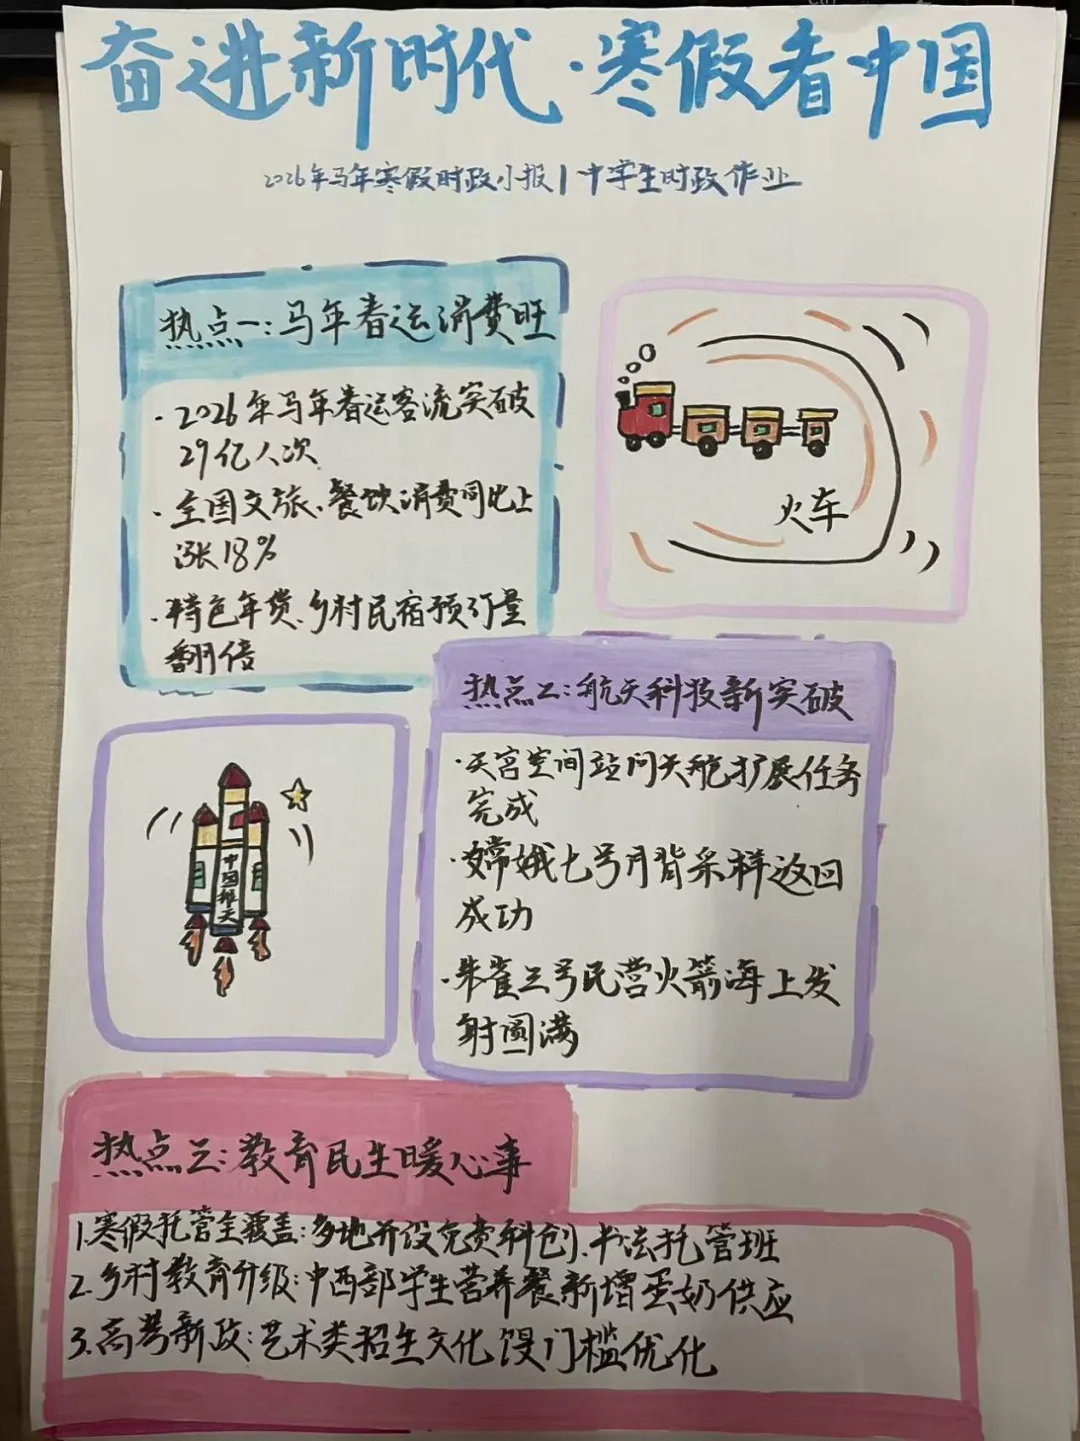 奋进新时代·寒假看中国
2026年马年寒假时政小报|中学生时政作业
热点一:马年春运消费旺
·2026年马年春运客流突破
29亿人次
·全国文旅、餐饮消费同比上
涨18%
·特色年货、乡村民宿预订量
翻倍
火车
热点二:航天科技新突破
·天宫空间站问天舱扩展任务
完成
·嫦娥七号月背采样返回
成功
·朱雀三号民营火箭海上发
射圆满
中国航天
热点三:教育民生暖心事
1.寒假托管全覆盖:多地开设免费科创、书法托管班
2.乡村教育升级:中西部学生营养餐新增蛋奶供应
3.高考新政:艺术类招生文化门槛优化